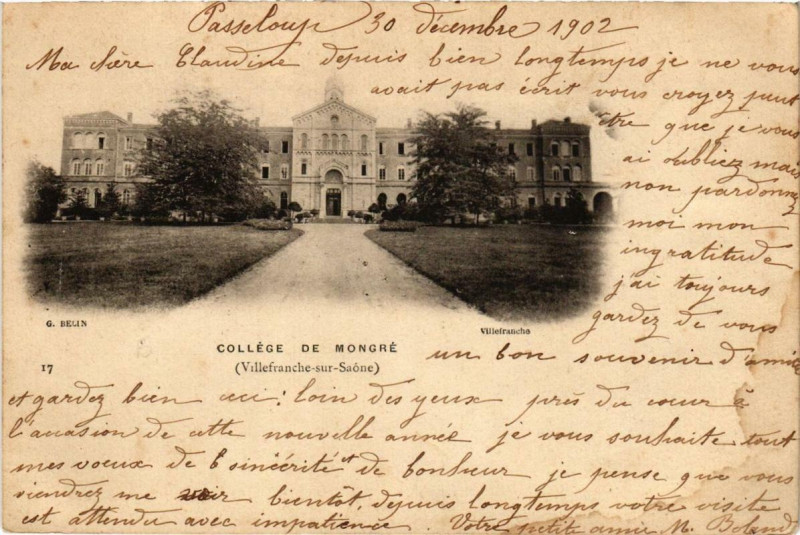 Passeloup 30 décembre 1902
Ma chère Claudine depuis bien longtemps je ne vous
avait pas écrit vous croyez peut
être que je vous
ai oubliez mais
non pardonnez
moi mon
ingratitude
j'ai toujours
gardez de vous
un bon souvenir d'amitié
G. BELIN
Villefranche
COLLÉGE DE MONGRÉ
17
(Villefranche-sur-Saône)
et gardez bien ceci : loin des yeux près du cœur à
l'occasion de cette nouvelle année je vous souhaite tout
mes voeux de sincérité et de bonheur je pense que vous
viendrez me voir bientôt, depuis longtemps votre visite
est attendu avec impatience. Votre petite amie M. Boland